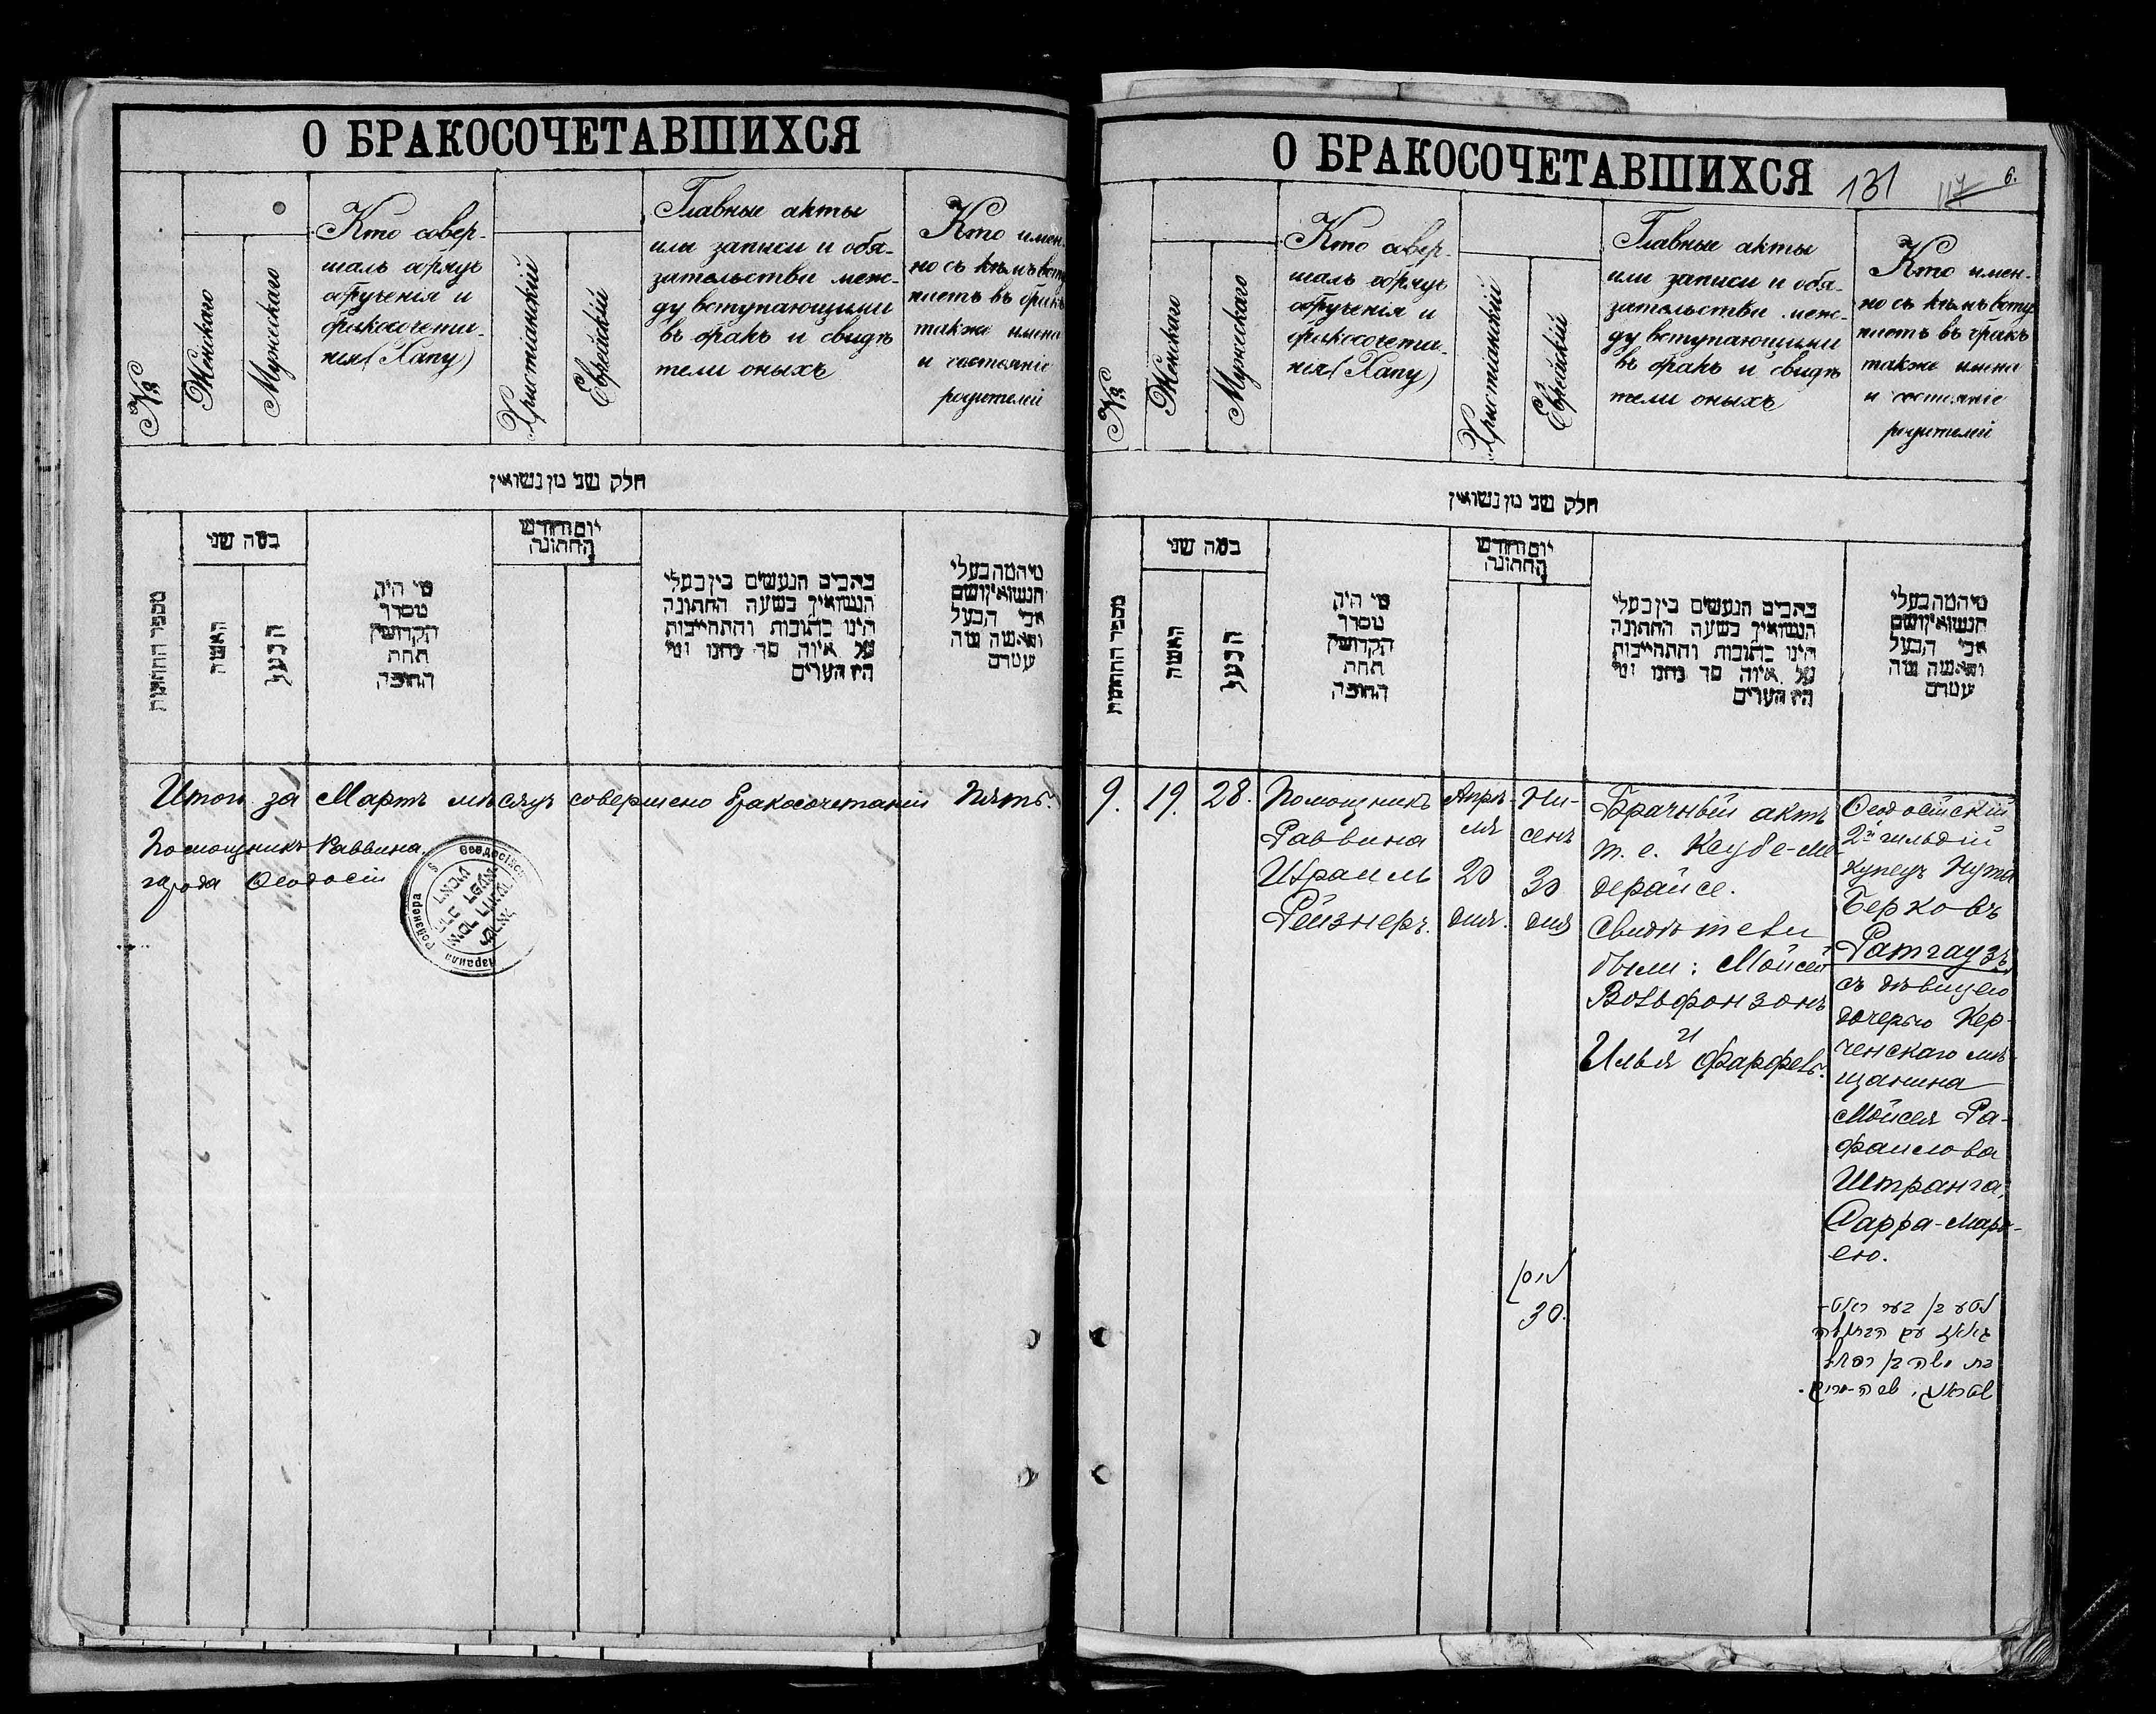 О БРАКОСОЧЕТАВШИХСЯ
№
Женскаго
Мужескаго
Кто совер-
шалъ обрядъ
обрученія и
бракосочета-
нія (Хапу)
Христіанскій
Еврейскій
Главные акты
или записи и обя-
зательства меж-
ду вступающими
въ бракъ и свидѣ
тели оныхъ
Кто имен-
но съ кѣмъ всту
паетъ въ бракъ
также имена
и состояніе
родителей
חלק שני מן נשואין
מספר החתונות
במה שני
האשה
הבעל
מי היה
מסדר
הקדושין
תחת
החופה
יום וחודש
החתונה
כתבים הנעשים בין בעלי
הנשואין בשעה החתונה
היינו כתובות והתחייבות
על איזה סך נתנו ומי
היו העדים
מי המה בעלי
הנשואין ושם
אבי הבעל
והאשה
Итого за Мартъ мѣсяцъ совершено бракосочетаній пять.
Помощникъ Раввина
города Ѳеодосіи
О БРАКОСОЧЕТАВШИХСЯ
131
117
6.
№
Женскаго
Мужескаго
Кто совер-
шалъ обрядъ
обрученія и
бракосочета-
нія (Хапу)
Христіанскій
Еврейскій
Главные акты
или записи и обя-
зательства меж-
ду вступающими
въ бракъ и свидѣ
тели оныхъ
Кто имен-
но съ кѣмъ всту
паетъ въ бракъ
также имена
и состояніе
родителей
חלק שני מן נשואין
מספר החתונות
במה שני
האשה
הבעל
מי היה
מסדר
הקדושין
תחת
החופה
יום וחודש
החתונה
כתבים הנעשים בין בעלי
הנשואין בשעה החתונה
היינו כתובות והתחייבות
על איזה סך נתנו ומי
היו העדים
מי המה בעלי
הנשואין ושם
אבי הבעל
והאשה
9.
19.
28.
Помощникъ
Раввина
Израиль
Рейзнеръ.
Апрѣ
ля
20
дня.
Ни-
сенъ
30
дня
Брачный актъ
т. е. Ксубе-Ме-
дерайсе.
Свидѣтели
были: Мойсей
Вольфонзонъ
и
Илья Фарфель.
Ѳеодосійскій
2й гильдіи
купецъ Нута
Берковъ
Ратгаузъ,
съ дѣвицею
дочерью Кер-
ченскаго мѣ-
щанина
Мойсея Ра-
фаилова
Штранга,
Сарра-Марі-
ею.
ניסן
30.